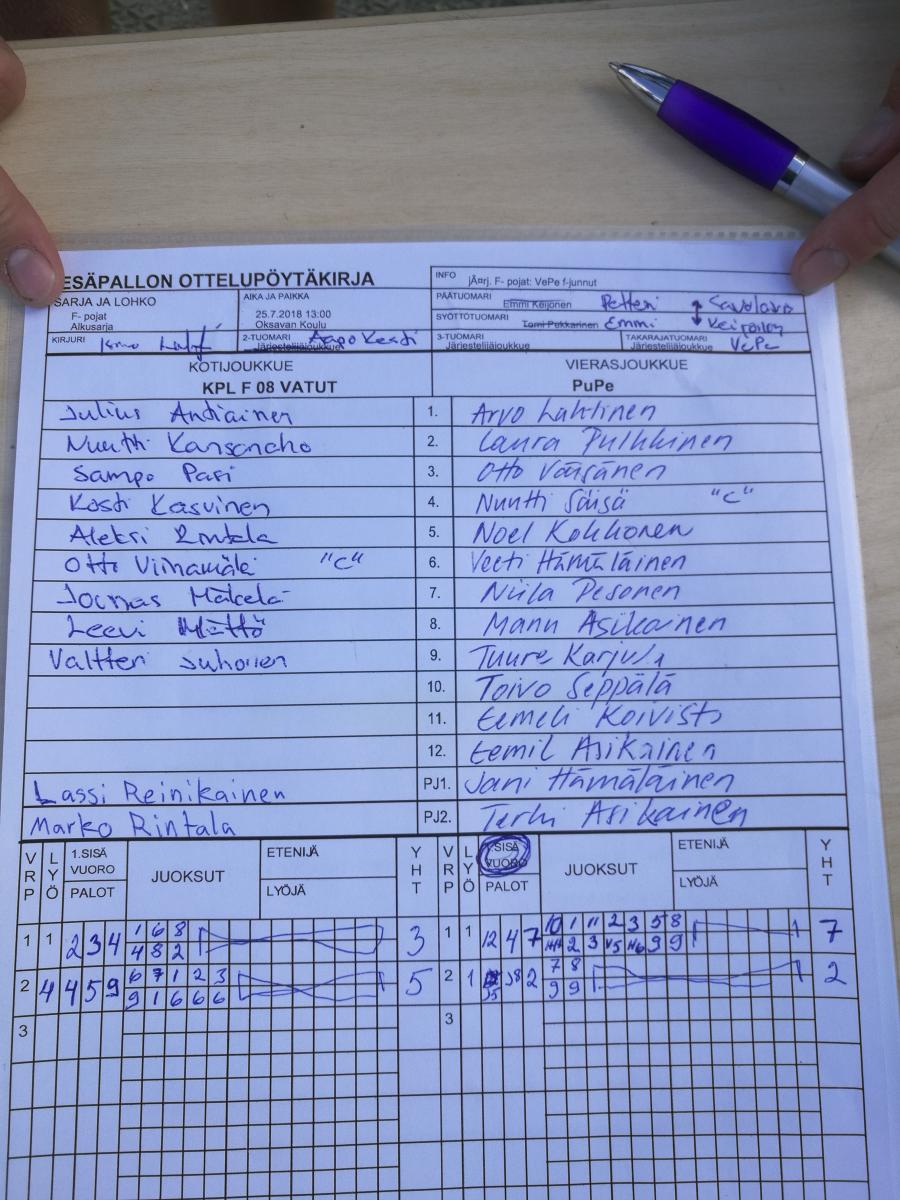 ESÄPALLON OTTELUPÖYTÄKIRJA
INFO jÃ¤rj. F- pojat: VePe f-junnut
SARJA JA LOHKO
F- pojat
Alkusarja
AIKA JA PAIKKA
25.7.2018 13:00
Oksavan Koulu
PÄÄTUOMARI Emmi Keijonen Petteri Savolainen
SYÖTTÖTUOMARI Tomi Pukkarinen Emmi Keijonen
KIRJURI
2-TUOMARI Aapo Kesti
Järjestelijäjoukkue
3-TUOMARI
Järjestelijäjoukkue
TAKARAJATUOMARI VePe
Järjestelijäjoukkue
KOTIJOUKKUE VIERASJOUKKUE
KPL F 08 VATUT PuPe
Julius Antiainen 1. Arvo Lahtinen
Nuutti Kansanaho 2. Laura Pulkkinen
Sampo Pasi 3. Otto Väisänen
Kosti Kasvinen 4. Nuutti Säisä "C"
Aleksi Rintala 5. Noel Kokkonen
Otto Viinamäki "C" 6. Veeti Hämäläinen
Joonas Mäkelä 7. Niila Pesonen
Leevi Mättö 8. Manu Asikainen
Valtteri Suhonen 9. Tuure Karjula
10. Toivo Seppälä
11. Eemeli Koivisto
12. Eemil Asikainen
Lassi Reinikainen PJ1. Jani Hämäläinen
Marko Rintala PJ2. Terhi Asikainen
VRP LYÖ 1.SISÄ VUORO PALOT JUOKSUT ETENIJÄ LYÖJÄ YHT VRP LYÖ 1.SISÄ VUORO PALOT JUOKSUT ETENIJÄ LYÖJÄ YHT
1 1 2 3 4 1 6 8 3 1 1 12 4 7 10 1 11 2 3 5 8 7
4 8 2 2 3 9 9
2 4 4 5 9 6 7 1 2 3 5 2 1 2 7 8 2
9 1 6 6 6 9 9
3 3